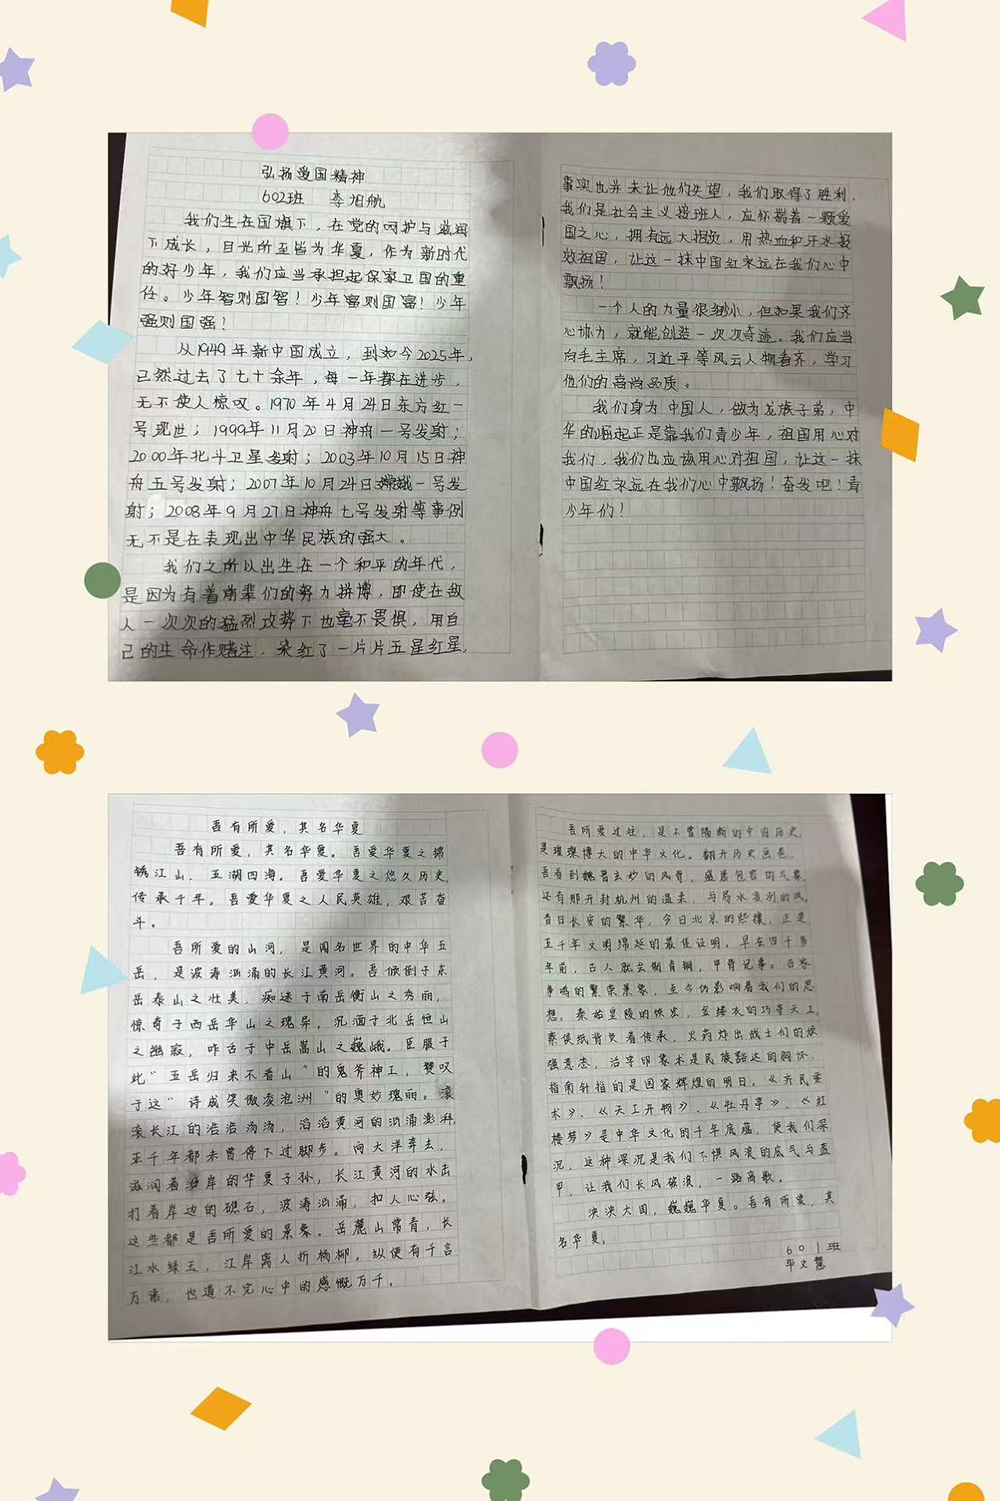 弘扬爱国精神
602班 李旭航
我们生在国旗下，在党的呵护与滋润
下成长，目光所至皆为华夏，作为新时代
的好少年，我们应当承担起保家卫国的重
任。少年智则国智！少年富则国富！少年
强则国强！
从1949年新中国成立，到如今2025年，
已然过去了七十余年，每一年都在进步，
无不使人惊叹。1970年4月24日东方红一
号现世；1999年11月20日神舟一号发射；
2000年北斗卫星发射；2003年10月15日神
舟五号发射；2007年10月24日嫦娥一号发
射；2008年9月27日神舟七号发射等事例
无不是在表现出中华民族的强大。
我们之所以出生在一个和平的年代，
是因为有着前辈们的努力拼搏，即使在敌
人一次次的猛烈攻势下也毫不畏惧，用自
己的生命作赌注，染红了一片片五星红星，
事实也并未让他们失望，我们取得了胜利，
我们是社会主义接班人，应怀揣着一颗爱
国之心，拥有远大抱负，用热血和汗水报
效祖国，让这一抹中国红永远在我们心中
飘扬！
一个人的力量很细小，但如果我们齐
心协力，就能创造一次次奇迹。我们应当
向毛主席，习近平等风云人物看齐，学习
他们的高尚品质。
我们身为中国人，做为龙族子弟，中
华的崛起正是靠我们青少年，祖国用心对
我们，我们也应该用心对祖国，让这一抹
中国红永远在我们心中飘扬！奋发吧！青
少年们！
吾有所爱，其名华夏
吾有所爱，其名华夏。吾爱华夏之锦
锈江山，五湖四海。吾爱华夏之悠久历史，
传承千年。吾爱华夏之人民英雄，艰苦奋
斗。
吾所爱的山河，是闻名世界的中华五
岳，是波涛汹涌的长江黄河。吾倾倒于东
岳泰山之壮美，痴迷于南岳衡山之秀丽，
惊奇于西岳华山之瑰异，沉湎于北岳恒山
之幽寂，咋舌于中岳嵩山之巍峨。臣服于
此“五岳归来不看山”的鬼斧神工，赞叹
于这“诗成笑傲凌沧洲”的奥妙瑰丽。滚
滚长江的浩浩汤汤，滔滔黄河的汹涌澎湃，
五千年都未曾停下过脚步。向大洋奔去，
滋润着沿岸的华夏子孙，长江黄河的水击
打着岸边的礁石，波涛汹涌，扣人心弦。
这些都是吾所爱的景象。岳麓山常青，长
江水绿玉，江岸离人折杨柳。纵使有千言
万语，也道不完心中的感慨万千。
吾所爱过往，是不曾隔断的中国历史，
是璀璨博大的中华文化。翻开历史画卷，
吾看到魏晋玄妙的风骨，盛唐包容的气象，
还有那开封杭州的温柔，与易水凄冽的风。
昔日长安的繁华，今日北京的熙攘，正是
五千年文明绵延的最佳证明。早在四千多
年前，古人就会制青铜，甲骨记事。百家
争鸣的繁荣景象，至今仍影响着我们的思
想。秦始皇陵的恢宏，金缕衣的巧夺天工，
蔡侯纸背负着传承，火药炸出战士们的坚
强意志，活字印象术是民族豁达的胸怀，
指南针指的是国家辉煌的明日，《齐民要
术》、《天工开物》、《牡丹亭》、《红
楼梦》是中华文化的千年底蕴，使我们深
沉，这种深沉是我们不惧风浪的底气与盔
甲，让我们长风破浪，一路高歌。
泱泱大国，巍巍华夏。吾有所爱，其
名华夏。
601班
毕文慧